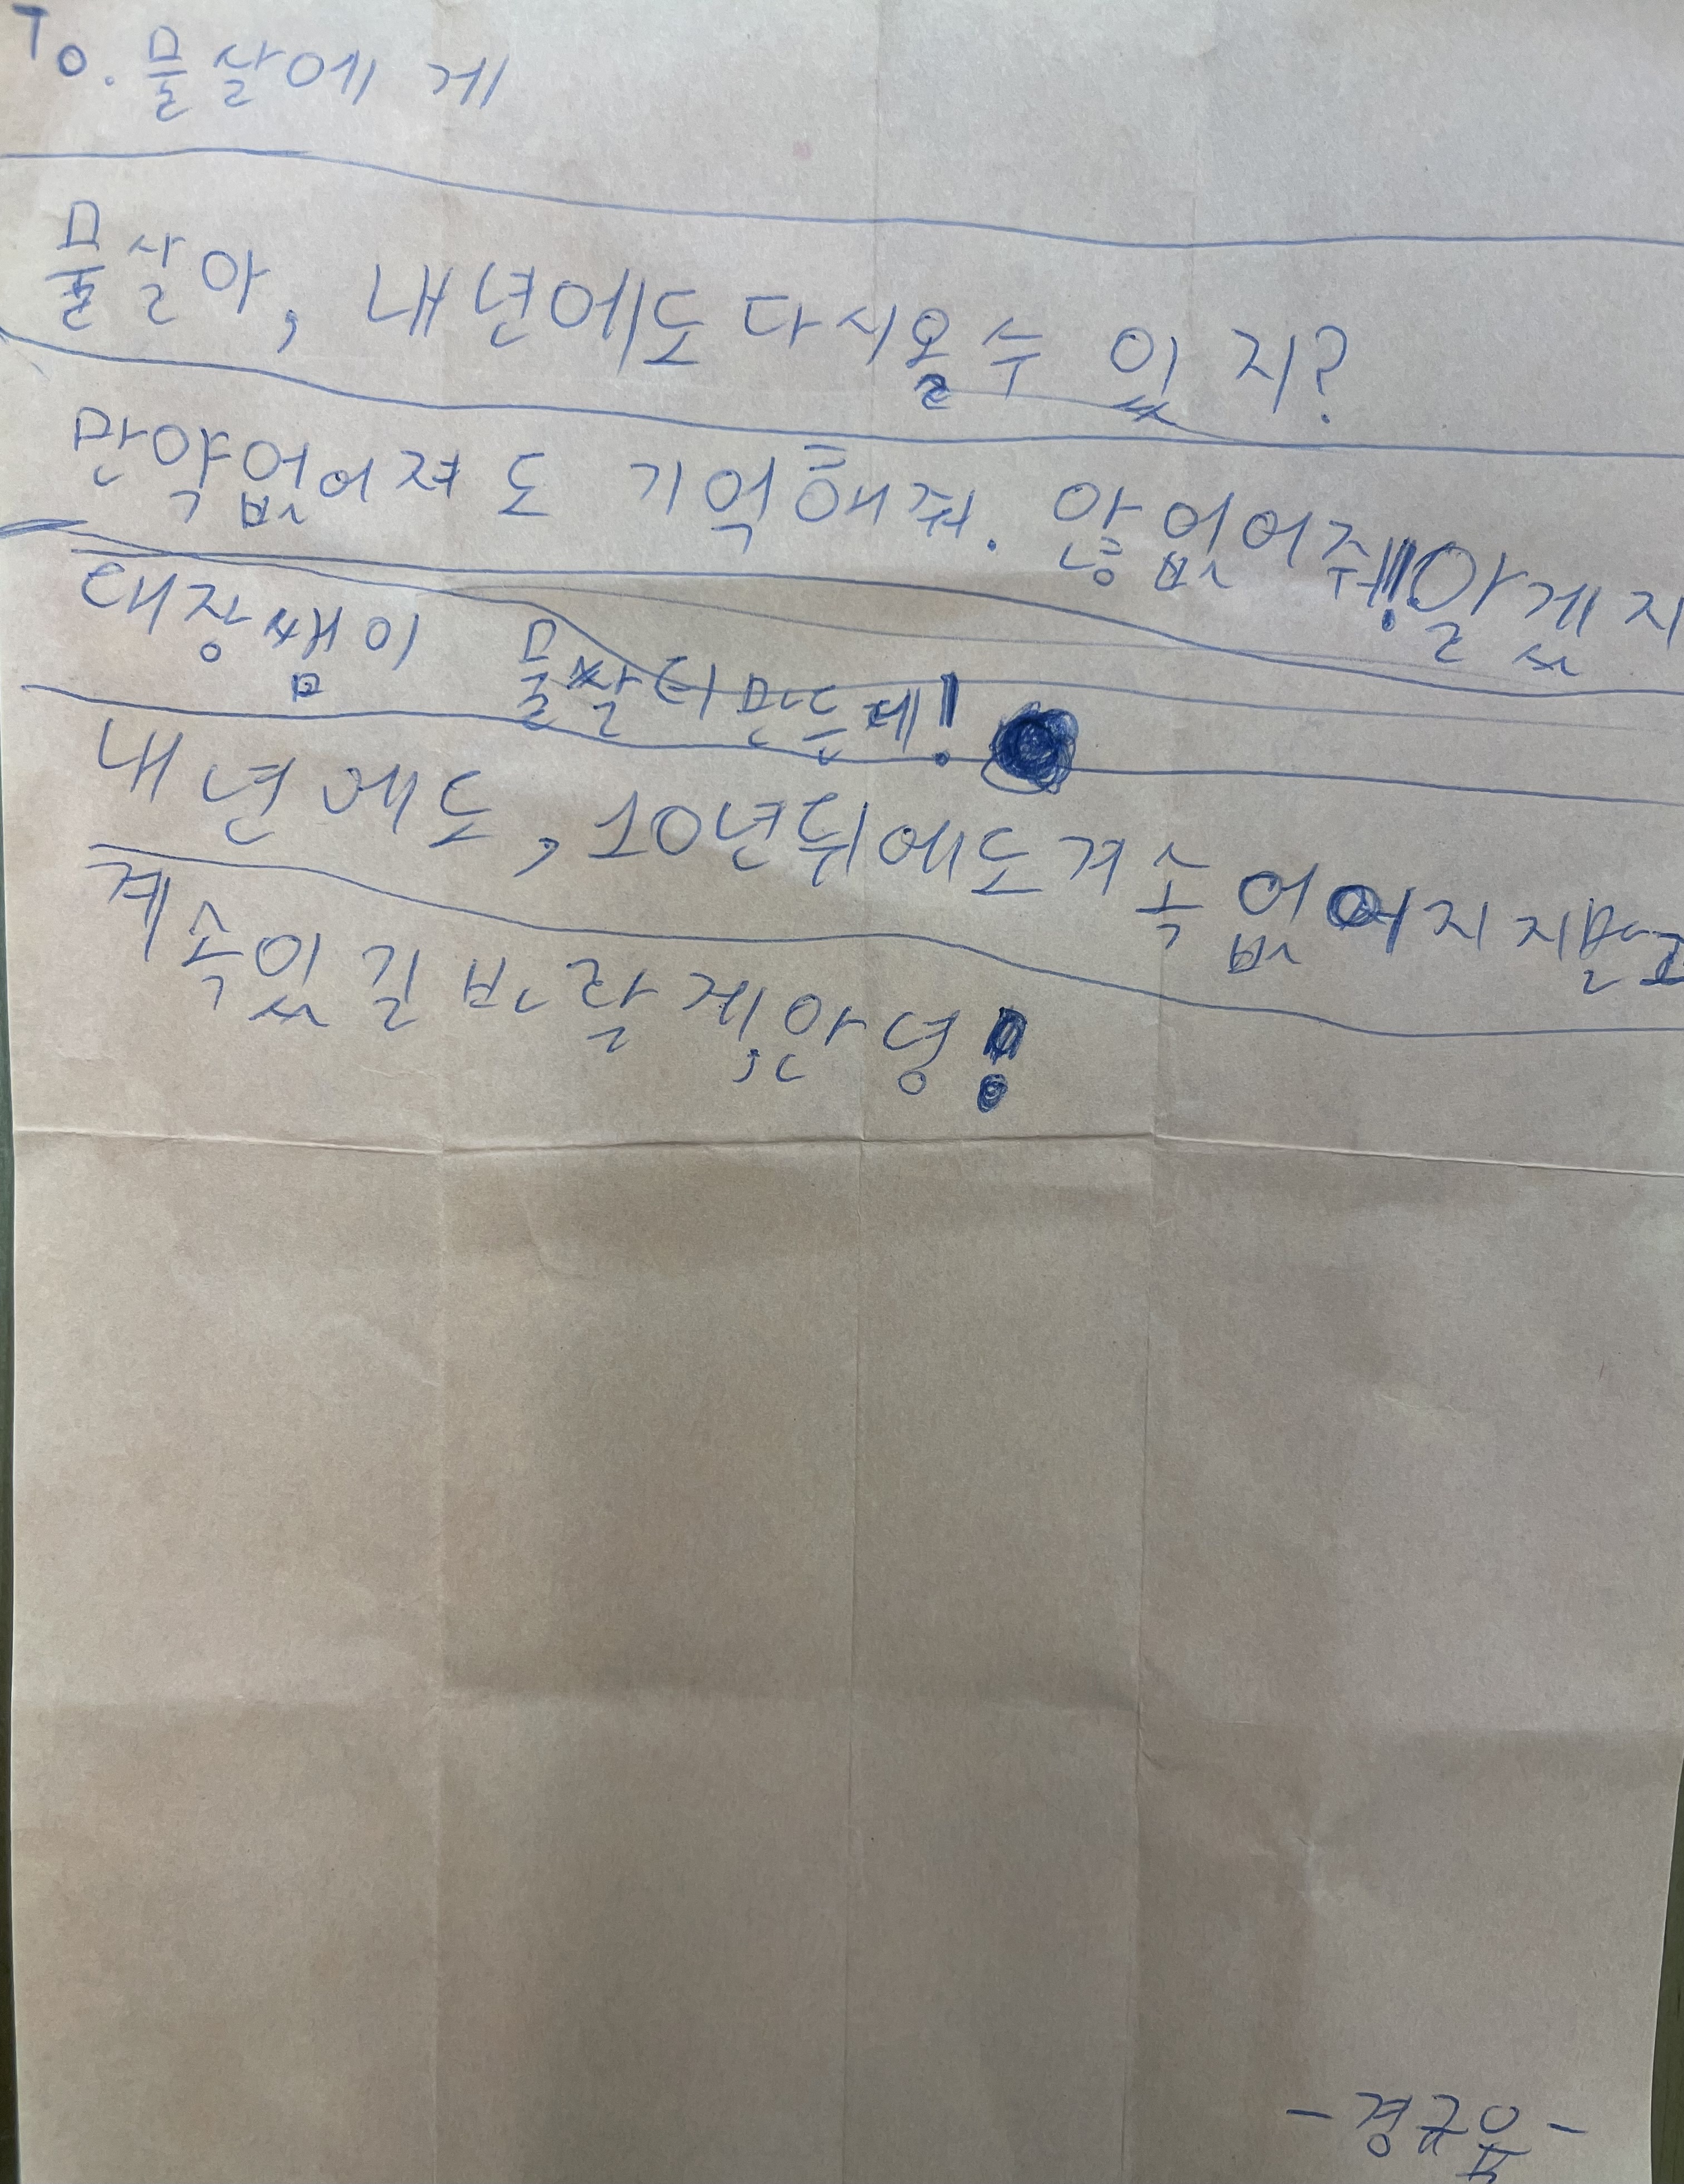 To.물살에게
물살아, 내년에도 다시올수 있지?
만약없어져도 기억해줘. 않없어줘!!알겠지
대장쌤이 물쌀터만든데!
내년에도, 10년뒤에도겨속 없어지지말고
계속있길 바랄게,안녕!
-경규